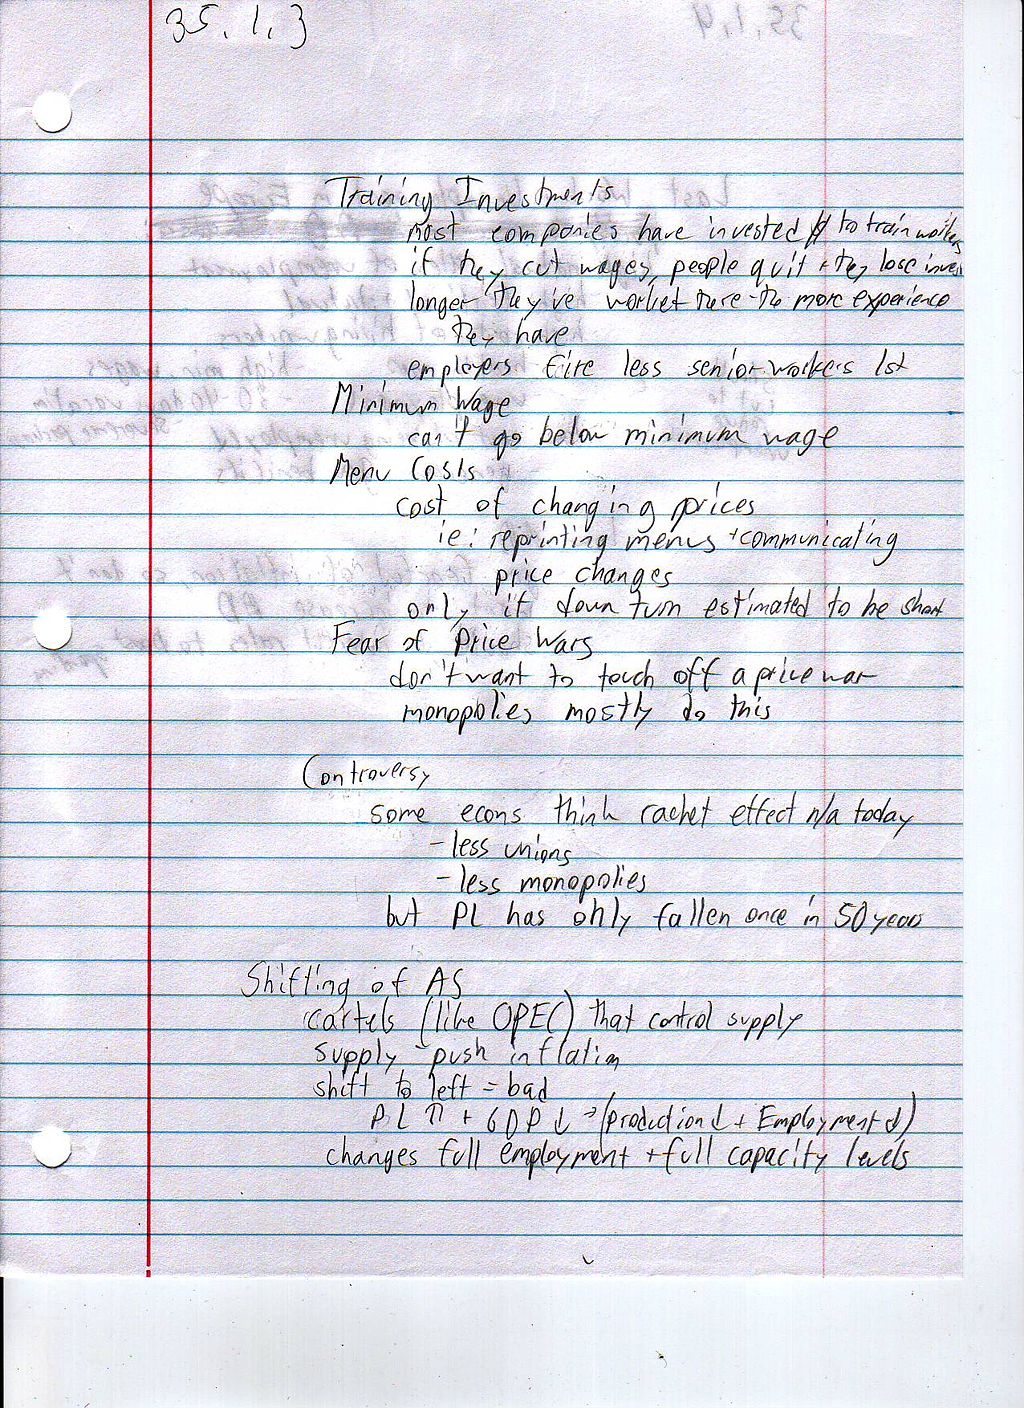 35.1.3
Training Investments
most companies have invested $ to train workers
if they cut wages, people quit + they lose inves
longer they've worket there - the more experience
they have
employers fire less senior workers 1st
Minimum Wage
can't go below minimum wage
Menu Costs
cost of changing prices
ie: reprinting menus + communicating
price changes
only if down turn estimated to be short
Fear of Price Wars
don't want to touch off a price war
monopolies mostly do this
Controversy
some econs think rachet effect n/a today
- less unions
- less monopolies
but PL has only fallen once in 50 years
Shifting of AS
cartels (like OPEC) that control supply
supply - push inflation
shift to left = bad
PL ↑ + GDP ↓ → (production ↓ + Employment ↓)
changes full employment + full capacity levels